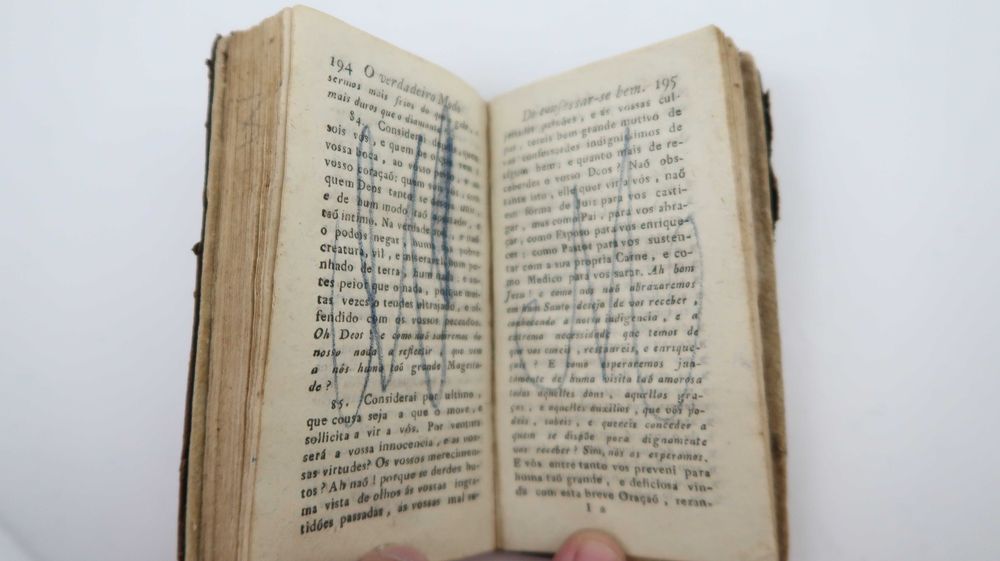 194 O verdadeiro Modo
sermos mais frios do que gelo,
mais duros que o diamante
84. Considerai quem
sois vós, e quem he o que vem á
vossa boca, ao vosso peito, e ao
vosso coração; quem sois vós, com
quem Deos tanto se deseja unir,
e de hum modo taõ apertado, e
taõ intimo. Na verdade sois, e naõ
o podeis negar, huma pobre
creatura, vil, e miseravel, hum pu-
nhado de terra, hum nada, e an-
tes peior que o nada, porque mui-
tas vezes o tendes ultrajado, e of-
fendido com os vossos peccados.
Oh Deos! e como naõ
nosso nada a reflectir, que vem
a nós huma taõ grande Magesta-
de?
85. Considerai por ultimo,
que cousa seja a que o move, e
sollicita a vir a vós. Por ventura
será a vossa innocencia, e as vos-
sas virtudes? Os vossos merecimen-
tos? Ah naõ! porque se derdes hu-
ma vista de olhos ás vossas ingra-
tidões passadas, ás vossas mal
De confessar-se bem. 195
paixões, e ás vossas cul-
pas, tereis bem grande motivo de
vos confessardes indignissimos de
algum bem; e quanto mais de re-
ceberdes o vosso Deos? Naõ obs-
tante isto, elle quer vir a vós, naõ
em fórma de Juiz para vos casti-
gar, mas como Pai, para vos abra-
çar, como Esposo para vos enrique-
cer; como Pastor para vos susten-
tar com a sua propria Carne, e co-
mo Medico para vos sarar. Ah bom
Jesu! e como nós naõ abrazaremos
em hum Santo desejo de vos receber,
conhecendo a nossa indigencia, e a
extrema necessidade que temos de
que vos cureis, restaureis, e enrique-
çais? E como esperaremos jun-
tamente de huma visita taõ amorosa
todas aquelles dons, aquellas gra-
ças, e aquelles auxilios, que vós po-
deis, sabeis, e quereis conceder a
quem se dispõe para dignamente
vos receber? Sim, nós os esperamos.
E vós entre tanto vos preveni para
huma taõ grande, e deliciosa vin-
da com esta breve Oraçaõ, rezan-
I a